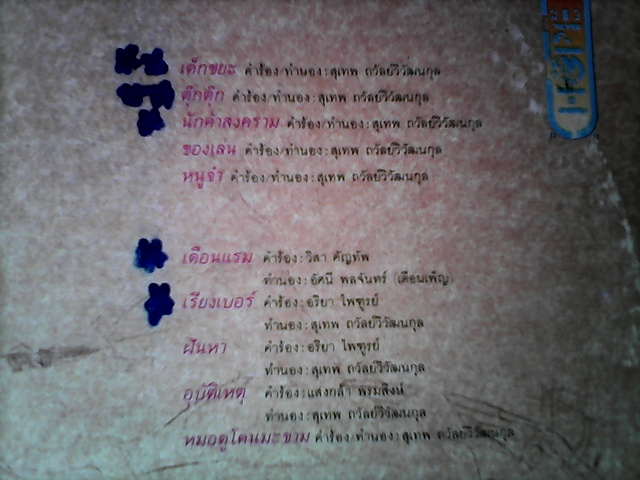 เด็กขยะ คำร้อง/ทำนอง : สุเทพ ถวัลย์วิวัฒนกุล
ตุ๊กตุ๊ก คำร้อง/ทำนอง : สุเทพ ถวัลย์วิวัฒนกุล
นักค้าสงคราม คำร้อง/ทำนอง : สุเทพ ถวัลย์วิวัฒนกุล
ของเล่น คำร้อง/ทำนอง : สุเทพ ถวัลย์วิวัฒนกุล
หนูจ๋า คำร้อง/ทำนอง : สุเทพ ถวัลย์วิวัฒนกุล
เดือนแรม คำร้อง : วิสา คัญทัพ
ทำนอง : อัศนี พลจันทร์ (เดือนเพ็ญ)
เรียงเบอร์ คำร้อง : อริยา ไพฑูรย์
ทำนอง : สุเทพ ถวัลย์วิวัฒนกุล
ฝันหา คำร้อง : อริยา ไพฑูรย์
ทำนอง : สุเทพ ถวัลย์วิวัฒนกุล
อุบัติเหตุ คำร้อง : แสงกล้า พรมสิงห์
ทำนอง : สุเทพ ถวัลย์วิวัฒนกุล
หมอดูโคนมะขาม คำร้อง/ทำนอง : สุเทพ ถวัลย์วิวัฒนกุล
HOPE